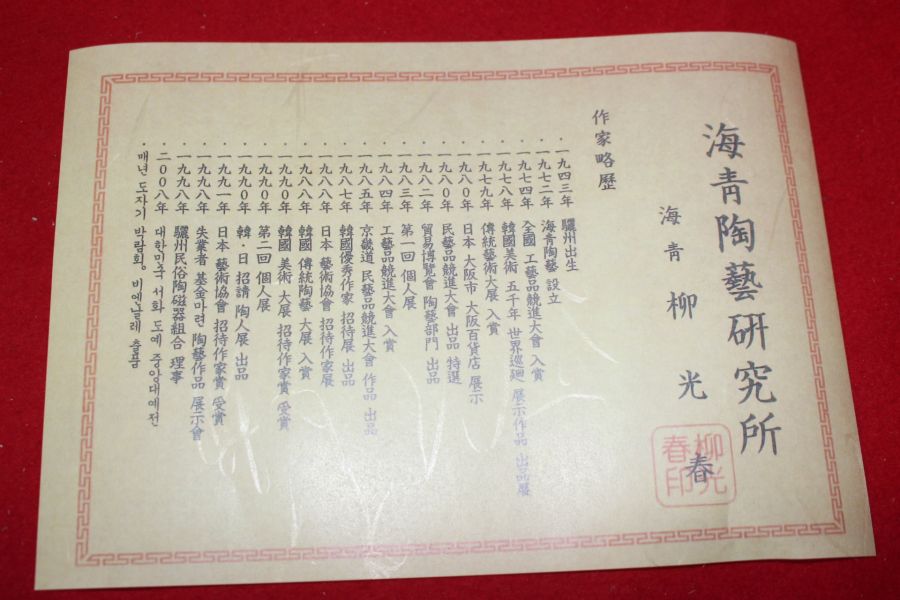 海靑陶藝硏究所
海靑 柳光春
柳光春印
作家略歷
・一九四三年 驪州出生
・一九七二年 海靑陶藝 設立
・一九七四年 全國 工藝品競進大會 入賞
・一九七八年 韓國美術 五千年 世界巡廻 展示作品 出品展
・一九七九年 傳統藝術大展 入賞
・一九八〇年 日本 大阪市 大阪百貨店 展示
・一九八〇年 民藝品競進大會 出品 特選
・一九八二年 貿易博覽會 陶藝部門 出品
・一九八三年 第一回 個人展
・一九八四年 工藝品競進大會 入賞
・一九八五年 京畿道 民藝品競進大會 作品 出品
・一九八七年 韓國優秀作家 招待展 出品
・一九八八年 日本 藝術協會 招待作家展
・一九八八年 韓國 傳統陶藝 大展 入賞
・一九九〇年 韓國 美術 大展 招待作家賞 受賞
・一九九〇年 第二回 個人展
・一九九〇年 韓・日 招請 陶人展 出品
・一九九一年 日本 藝術協會 招待作家賞 受賞
・一九九八年 失業者 基金마련 陶藝作品 展示會
・一九九八年 驪州民俗陶磁器組合 理事
・二〇〇八年 대한민국 서화 도예 중앙대예전
・매년 도자기 박람회, 비엔날레 출품